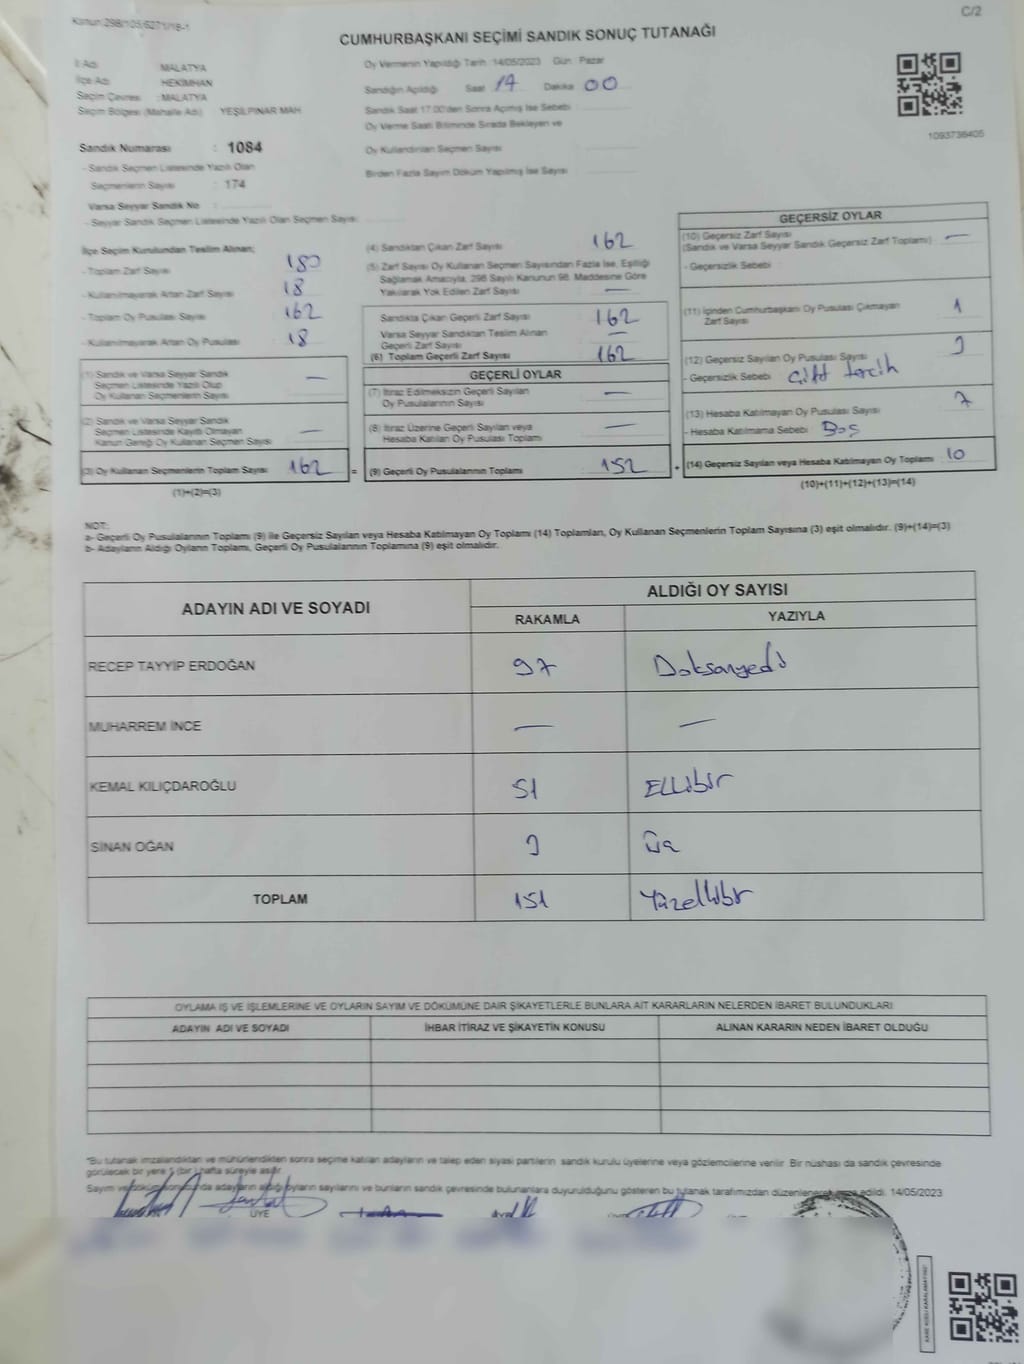 Kanun:298/105,6271/18-1
C/2
CUMHURBAŞKANI SEÇİMİ SANDIK SONUÇ TUTANAĞI
İl Adı : MALATYA
İlçe Adı : HEKİMHAN
Seçim Çevresi : MALATYA
Seçim Bölgesi (Mahalle Adı) : YEŞİLPINAR MAH.
Sandık Numarası : 1084
- Sandık Seçmen Listesinde Yazılı Olan
Seçmenlerin Sayısı : 174
Varsa Seyyar Sandık No :
- Seyyar Sandık Seçmen Listesinde Yazılı Olan Seçmen Sayısı :
Oy Vermenin Yapıldığı Tarih :14/05/2023 Gün : Pazar
Sandığın Açıldığı Saat 17 Dakika 00
Sandık Saat 17:00'den Sonra Açılmış İse Sebebi :
Oy Verme Saati Bitiminde Sırada Bekleyen ve
Oy Kullandırılan Seçmen Sayısı :
Birden Fazla Sayım Döküm Yapılmış İse Sayısı :
1093736405
İlçe Seçim Kurulundan Teslim Alınan;
- Toplam Zarf Sayısı : 180
- Kullanılmayarak Artan Zarf Sayısı : 18
- Toplam Oy Pusulası Sayısı : 162
- Kullanılmayarak Artan Oy Pusulası : 18
(1) Sandık ve Varsa Seyyar Sandık
Seçmen Listesinde Yazılı Olup
Oy Kullanan Seçmenlerin Sayısı : —
(2) Sandık ve Varsa Seyyar Sandık
Seçmen Listesinde Kayıtlı Olmayan
Kanun Gereği Oy Kullanan Seçmen Sayısı : —
(3) Oy Kullanan Seçmenlerin Toplam Sayısı : 162
(1)+(2)=(3)
(4) Sandıktan Çıkan Zarf Sayısı : 162
(5) Zarf Sayısı Oy Kullanan Seçmen Sayısından Fazla İse, Eşitliği
Sağlamak Amacıyla, 298 Sayılı Kanunun 98. Maddesine Göre
Yakılarak Yok Edilen Zarf Sayısı : —
Sandıkta Çıkan Geçerli Zarf Sayısı : 162
Varsa Seyyar Sandıktan Teslim Alınan
Geçerli Zarf Sayısı : —
(6) Toplam Geçerli Zarf Sayısı : 162
GEÇERLİ OYLAR
(7) İtiraz Edilmeksizin Geçerli Sayılan
Oy Pusulalarının Sayısı : —
(8) İtiraz Üzerine Geçerli Sayılan veya
Hesaba Katılan Oy Pusulası Toplamı : —
= (9) Geçerli Oy Pusulalarının Toplamı : 152
GEÇERSİZ OYLAR
(10) Geçersiz Zarf Sayısı
(Sandık ve Varsa Seyyar Sandık Geçersiz Zarf Toplamı) : —
- Geçersizlik Sebebi :
(11) İçinden Cumhurbaşkanı Oy Pusulası Çıkmayan
Zarf Sayısı : 1
(12) Geçersiz Sayılan Oy Pusulası Sayısı : 3
- Geçersizlik Sebebi : Çift tercih
(13) Hesaba Katılmayan Oy Pusulası Sayısı : 7
- Hesaba Katılmama Sebebi : Boş
+ (14) Geçersiz Sayılan veya Hesaba Katılmayan Oy Toplamı : 10
(10)+(11)+(12)+(13)=(14)
NOT:
a- Geçerli Oy Pusulalarının Toplamı (9) ile Geçersiz Sayılan veya Hesaba Katılmayan Oy Toplamı (14) Toplamları, Oy Kullanan Seçmenlerin Toplam Sayısına (3) eşit olmalıdır. (9)+(14)=(3)
b- Adayların Aldığı Oyların Toplamı, Geçerli Oy Pusulalarının Toplamına (9) eşit olmalıdır.
ADAYIN ADI VE SOYADI ALDIĞI OY SAYISI
RAKAMLA YAZIYLA
RECEP TAYYİP ERDOĞAN 97 Doksanyedi
MUHARREM İNCE — —
KEMAL KILIÇDAROĞLU 51 Ellibir
SİNAN OĞAN 3 Üç
TOPLAM 151 Yüzellibir
OYLAMA İŞ VE İŞLEMLERİNE VE OYLARIN SAYIM VE DÖKÜMÜNE DAİR ŞİKAYETLERLE BUNLARA AİT KARARLARIN NELERDEN İBARET BULUNDUKLARI
ADAYIN ADI VE SOYADI İHBAR İTİRAZ VE ŞİKAYETİN KONUSU ALINAN KARARIN NEDEN İBARET OLDUĞU
*Bu tutanak imzalandıktan ve mühürlendikten sonra seçime katılan adayların ve talep eden siyasi partilerin sandık kurulu üyelerine veya gözlemcilerine verilir. Bir nüshası da sandık çevresinde
görülecek bir yere 1 (bir) hafta süreyle asılır.
Sayım ve döküm sonucunda adayların aldığı oyların sayılarını ve bunların sandık çevresinde bulunanlara duyurulduğunu gösteren bu tutanak tarafımızdan edildi. 14/05/2023
ÜYE
KARE KODU KARALAMAYINIZ!